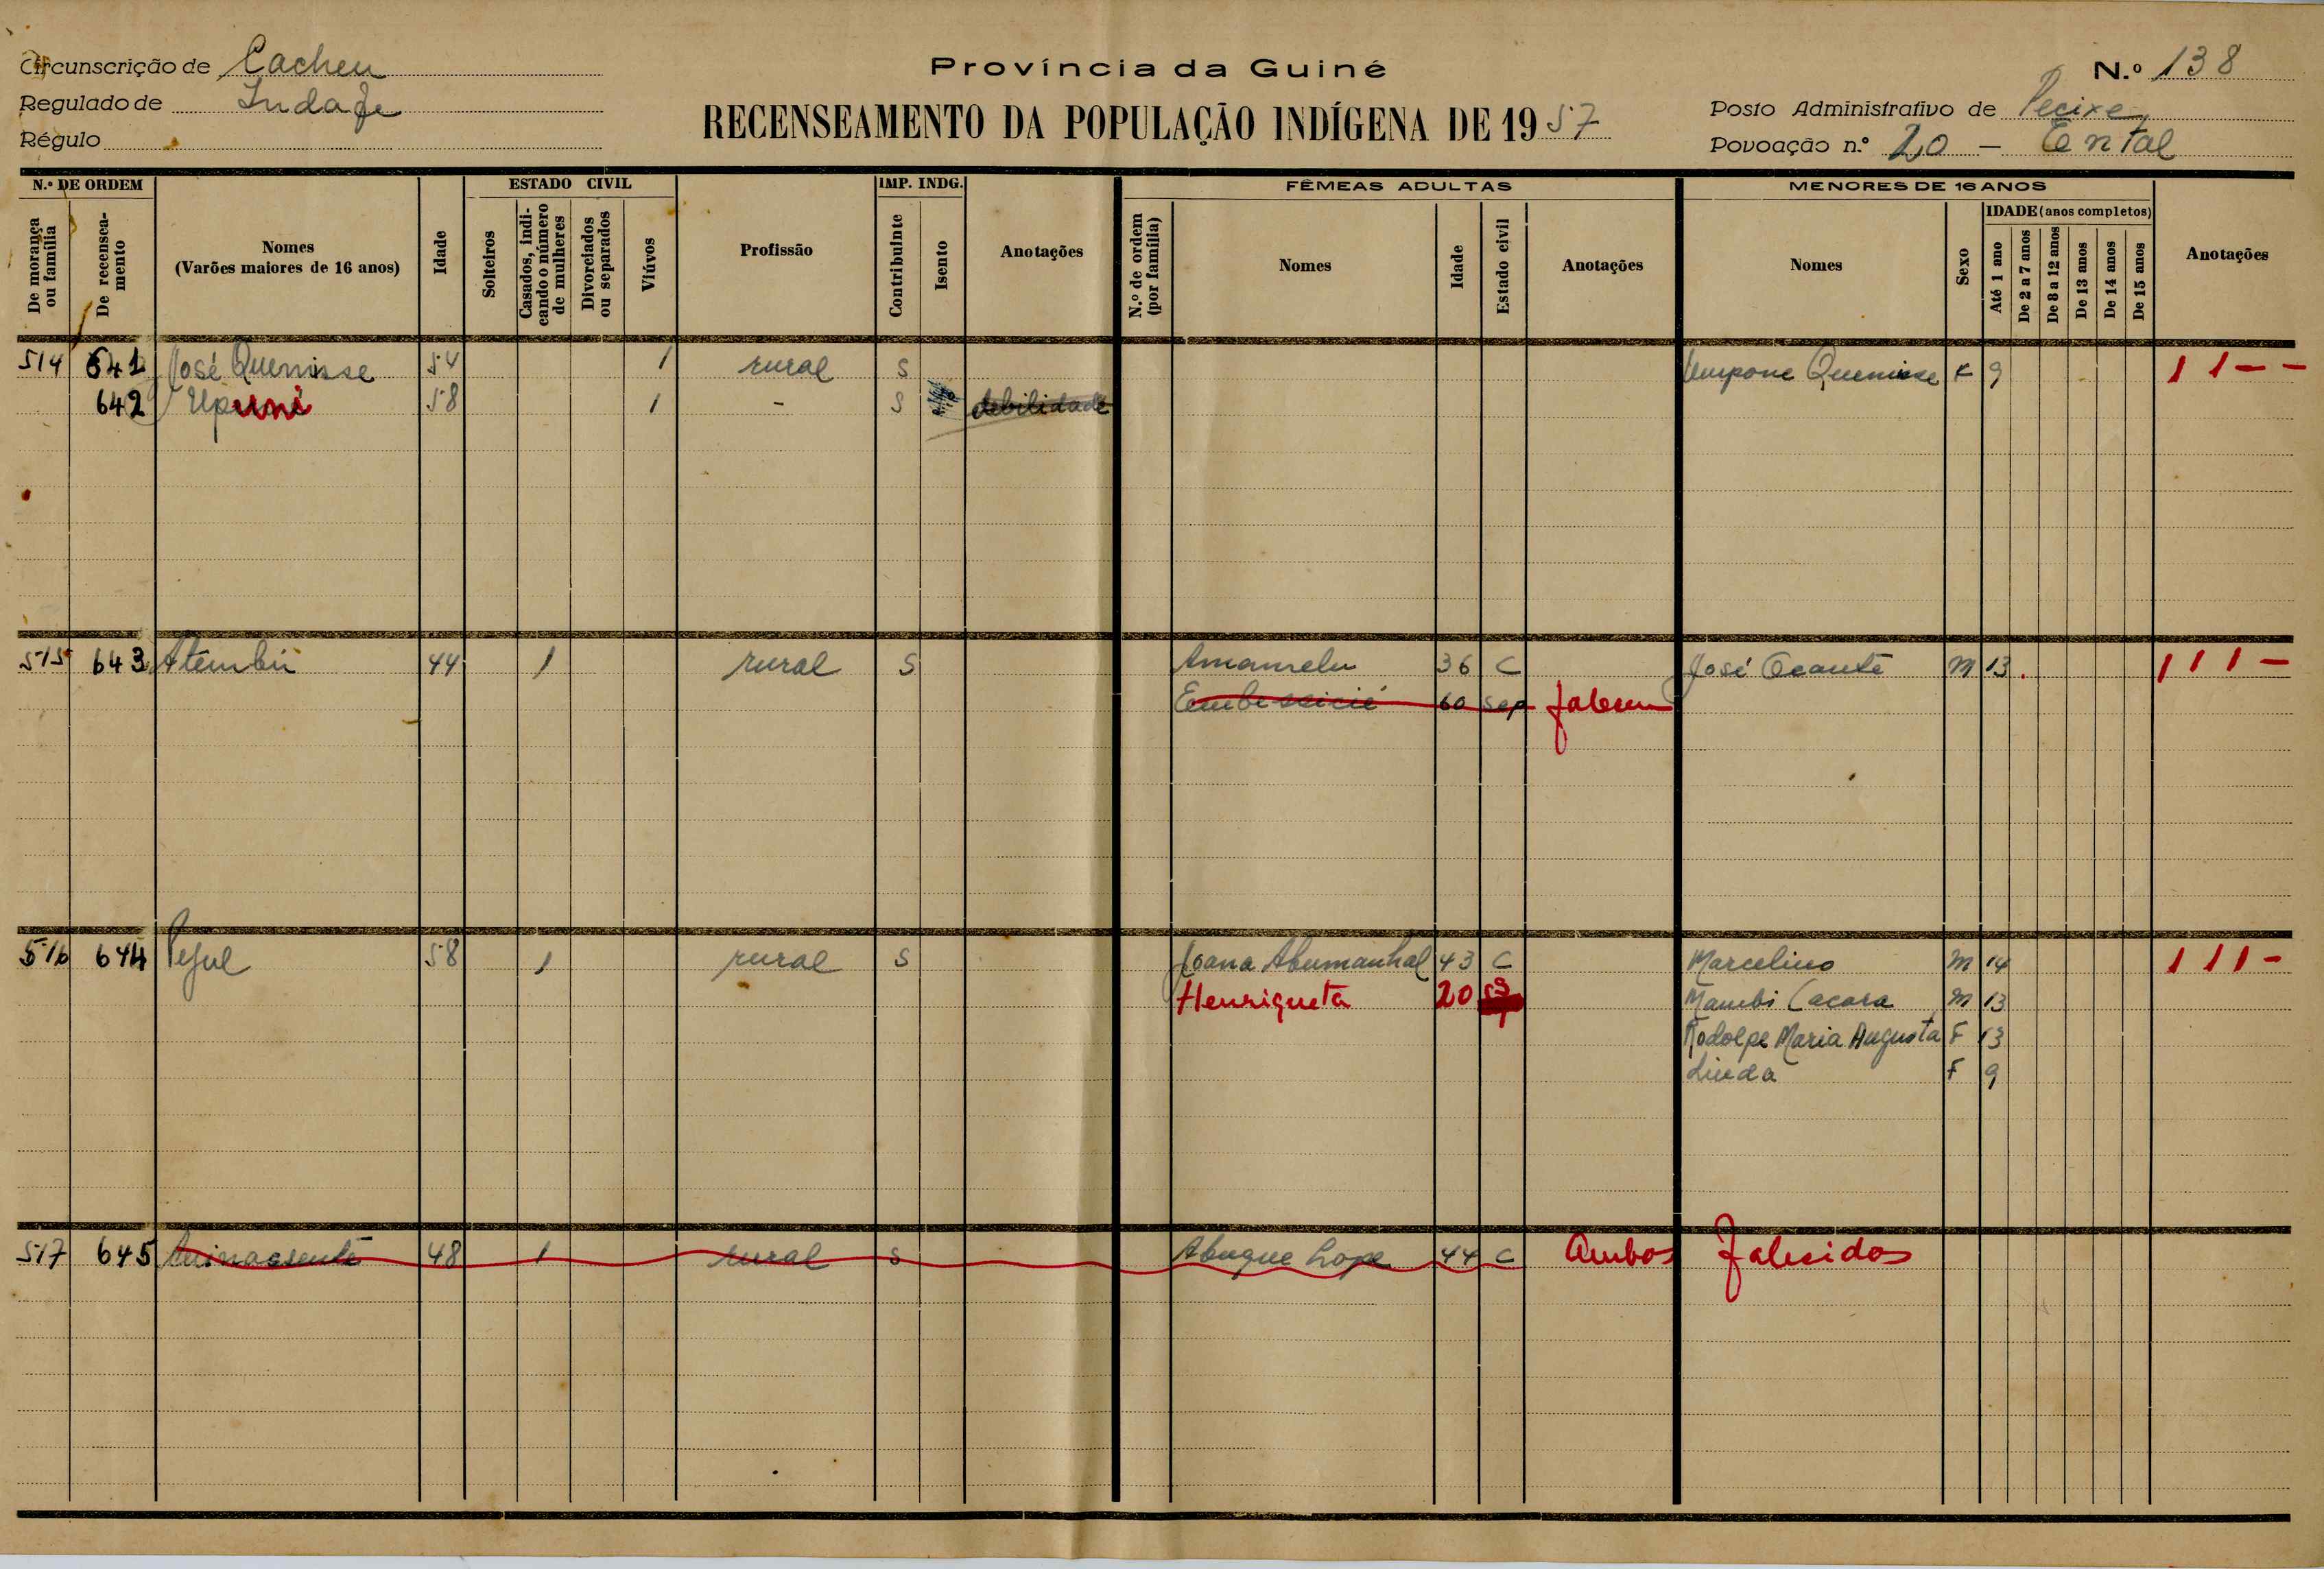 Província da Guiné
Circunscrição de Cacheu
Regulado de Indafe
Régulo
RECENSEAMENTO DA POPULAÇÃO INDÍGENA DE 1957
N.º 138
Posto Administrativo de Pecixe
Povoação n.º 20 — Ental
N.º DE ORDEM
De morança ou família
De recenseamento
Nomes
(Varões maiores de 16 anos)
Idade
ESTADO CIVIL
Solteiros
Casados, indicando o número de mulheres
Divorciados ou separados
Viúvos
Profissão
IMP. INDG.
Contribuinte
Isento
Anotações
FÊMEAS ADULTAS
N.º de ordem (por família)
Nomes
Idade
Estado civil
Anotações
MENORES DE 16 ANOS
Nomes
Sexo
IDADE (anos completos)
Até 1 ano
De 2 a 7 anos
De 8 a 12 anos
De 13 anos
De 14 anos
De 15 anos
Anotações
514 641 José Quenisse 54 1 rural S Umpone Quenisse F 9 1 1 - -
642 Upuni 58 1 - S debilidade
515 643 Atembu 44 1 rural S Amamelu 36 C José Ocante M 13 1 1 1 -
60 sep
516 644 58 1 rural S Joana Abumanhal 43 C Marcelino M 14 1 1 1 -
Henriqueta 20 Mambi Cacara M 13
Rodolpe Maria Augusta F 13
Linda F 9
517 645 48 1 rural S Abuque Lope 44 C Ambos Falecidos